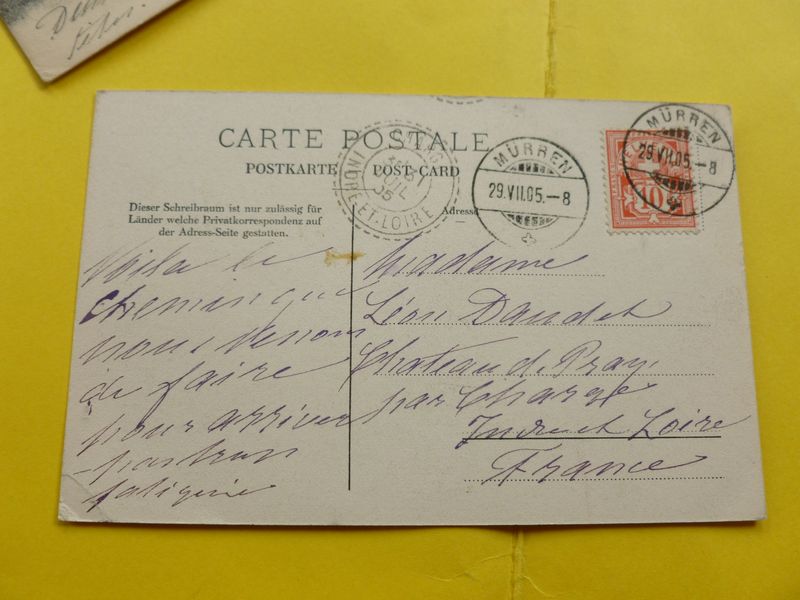 CARTE POSTALE
POSTKARTE POST-CARD
Dieser Schreibraum ist nur zulässig für
Länder welche Privatkorrespondenz auf
der Adress-Seite gestatten.
Adresse
INDRE-ET-LOIRE
JUIL
05
MÜRREN
29.VII.05.–8
MÜRREN
29.VII.05.–8
10
Voila le
chemin que
nous venons
de faire
pour arriver
pas trop
fatiguée
Madame
Léon Daudet
Chateau d. Pray,
par Chargé
Indre et Loire
France